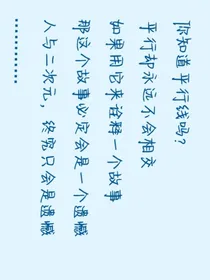 你知道平行线吗?
平行却永远不会相交
如果用它来诠释一个故事
那这个故事必定会是一个遗憾
人与二次元，终究只会是遗憾
…………